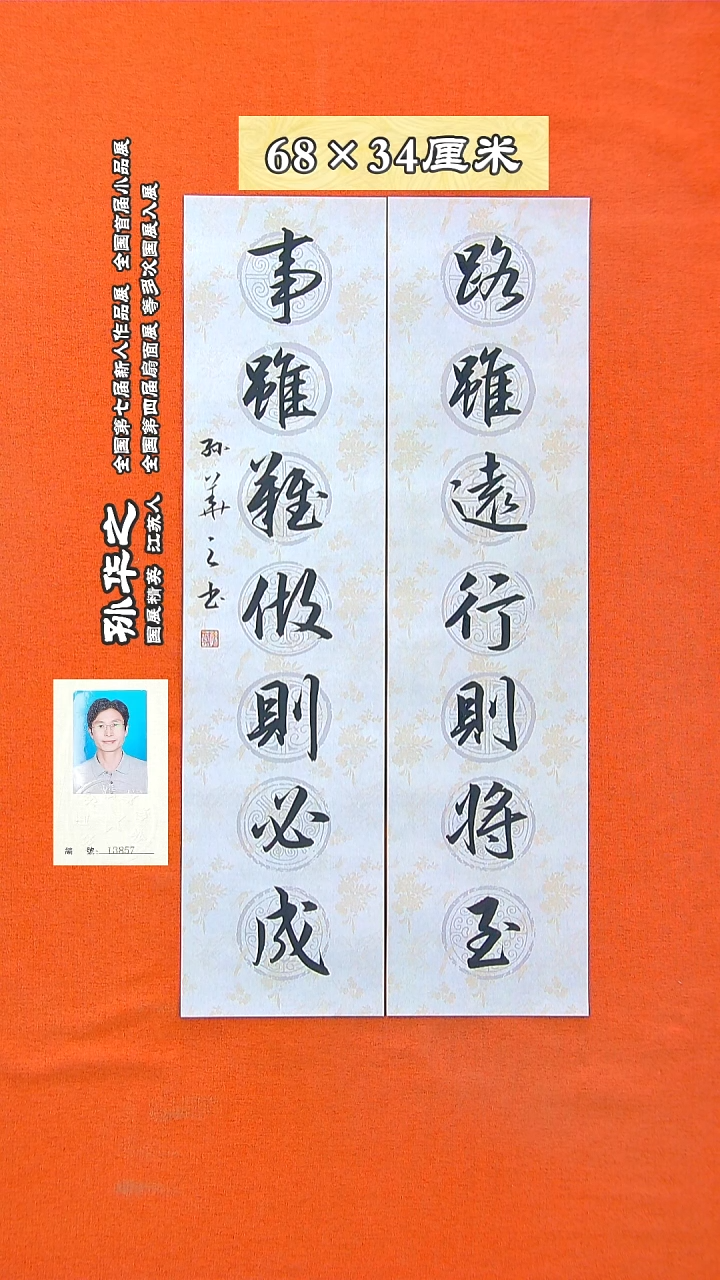 68×34厘米
路雖遠行則將至
事雖難做則必成
孫華之书
全国第七届新人作品展 全国首届小品展
全国第四届扇面展 等多次国展入展
孙华之
国展精英 江苏人
編 號: 13857